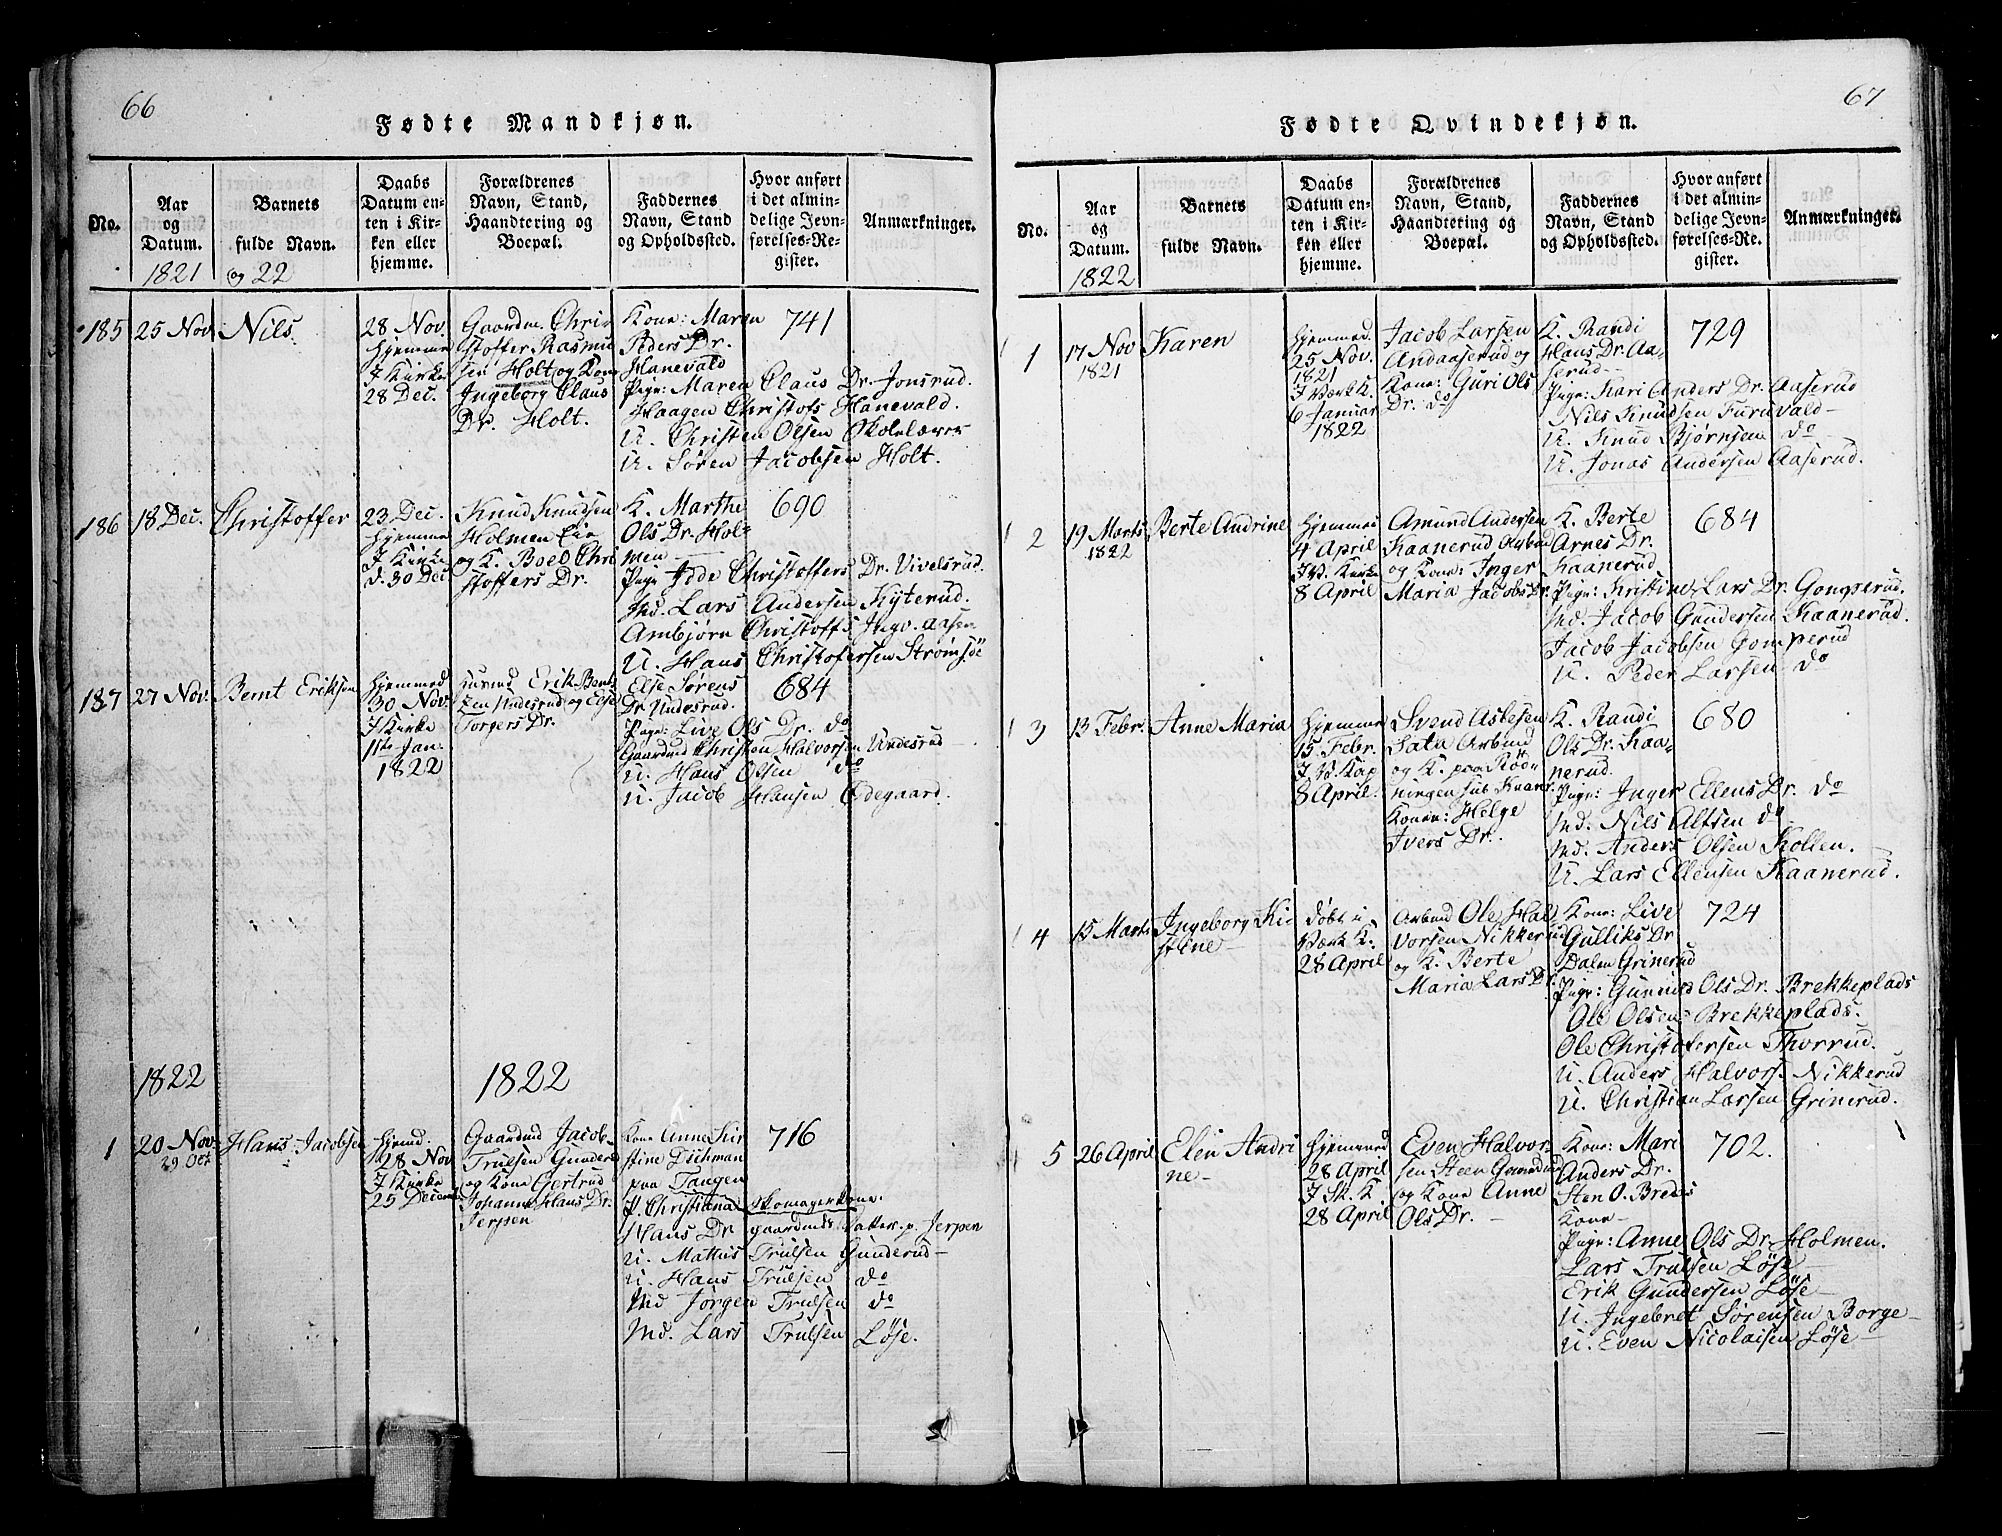 66
Fødte Mandkjøn.
No.
Aar
og
Datum.
1821
Barnets
fulde Navn.
og 22
Daabs
Datum en-
ten i Kir-
ken eller
hjemme.
Forældrenes
Navn, Stand,
Haandtering og
Boepæl.
Faddernes
Navn, Stand
og Opholdssted.
Hvor anført
i det almin-
delige Jevn-
førelses-Re-
gister.
Anmærkninger.
185
25 Nov.
Nils.
28 Nov.
hjemme
I Kirke
28 Dec.
Gaardm. Chris
stoffer Rasmu
sen Holt og Kone
Ingeborg Claus
Dr. Holt.
Kone: Maren
Peders Dr.
Hanevald
Pige: Maren Claus Dr. Jonsrud.
Haagen Christofs Hanevald.
U. Christen Olsen Skolelærer
U. Søren Jacobsen Holt.
741
186
18 Dec.
Christoffer
23 Dec.
hjemme
I Kirke
d. 30 Dec
Knud Knudsen
Holmen Eie
og K. Boel Chri
stoffers Dr.
K. Marthe
Ols Dr. Hol-
men
Pige Idde Christoffers Dr. Vivelsrud.
Md. Lars Andersen Kyterud.
Ambjørn Christoffs. Ingv. Aasen
U. Hans Christofersen Strømsøe
690
187
27 Nov.
Bernt Eriksen
hjemmed
30 Nov.
I Kirke
11te Jan.
1822
Erik Bent
sen Undesrud og Else
Torgers Dr.
Else Sørens
Dr. Undesrud.
Pige: Live Ols Dr. do
Gaardmd Christen Halvorsen Undesrud
U. Hans Olsen do
U. Jacob Hansen Ødegaard.
684
1822
1822
1
20 Nov.
29 Oct
Hans Jacobsen
hjemd.
28 Nov
I Kirke
25 Decemb
Gaardmd Jacob
Trulsen Gunderud
og Kone Gertrud
Johanne Hans Dr.
Jerpen
Kone Anne Kir
stine Dichman
paa Tangen
Skomagerkone.
P. Christiana
Hans Dr gaardmds Datter p. Jerpen
U. Mathis Trulsen Gunderud
U. Hans Trulsen do
Md Jørgen Trulsen do
Md. Lars Trulsen Løse.
716
67
Fødte Qvindekjøn.
No.
Aar
og
Datum.
1822
Barnets
fulde Navn.
Daabs
Datum en-
ten i Kir-
ken eller
hjemme.
Forældrenes
Navn, Stand,
Haandtering og
Boepæl.
Faddernes
Navn, Stand
og Opholdssted.
Hvor anført
i det almin-
delige Jevn-
førelses-Re-
gister.
Anmærkninger.
1
17 Nov
1821
Karen
hjemmed
25 Nov.
1821
I Værk K.
6 Januar
1822
Jacob Larsen
Andaaserud og
Kone: Guri Ols
Dr. do
K. Randi
Hans Dr. Aa-
serud
Pige: Kari Anders Dr. Aaserud
Nils Knudsen Furuvald
U. Knud Bjørnsen do
U. Jonas Andersen Aaserud.
729
2
19 Marts
1822
Berte Andrine
hjemmed
4 April
I V. Kirke
8 April
Amund Andersen
Kaanerud Arbmd
og Kone: Inger
Maria Jacobs Dr.
K. Berte
Arnes Dr.
Kaanerud
Pige: Kristine Lars Dr. Gomperud.
Md. Jacob Gundersen Kaanerud.
Jacob Jacobsen Gomperud
U. Peder Larsen do
684
3
13 Febr.
Anne Maria
hjemme
15 Febr.
I V. Kap
8 April.
Svend Asbesen
Sata Arbmd
og K. paa Rødn
ningen sub Kaaner
Kone: Helge
Ivers Dr.
K. Randi
Ols Dr. Kaa-
nerud.
Pige: Inger Ellens Dr. do
Md. Nils Alfsen do
Md. Anders Olsen Kollen.
U. Lars Ellensen Kaanerud.
680
4
15 Marts
Ingeborg Ki
stine
døbt i
Værk K.
28 April
Arbmd Ole Hal
vorsen Nikkerud
og K. Berte
Maria Lars Dr.
Kone: Live
Gulliks Dr
Dalen Grinerud
Pige: Gunnild Ols Dr. Brekkeplads
Ole Olsen Brekkeplads.
Ole Christofersen Thorrud.
U. Anders Halvors. Nikkerud
U. Christian Larsen Grinerud.
724
5
26 April
Elen Andri
ne
hjemmed
28 April
I Sk. K.
28 April
Even Halvor
sen Steen Gaardmd
og Kone Anne
Ols Dr.
Kone: Mari
Anders Dr.
Sten O. Bredes
Kone
Pige: Anne Ols Dr. Holmen.
Lars Trulsen Løse
Erik Gundersen Løse
U. Ingebret Sørensen Borge
U. Even Nicolaisen Løse
702.